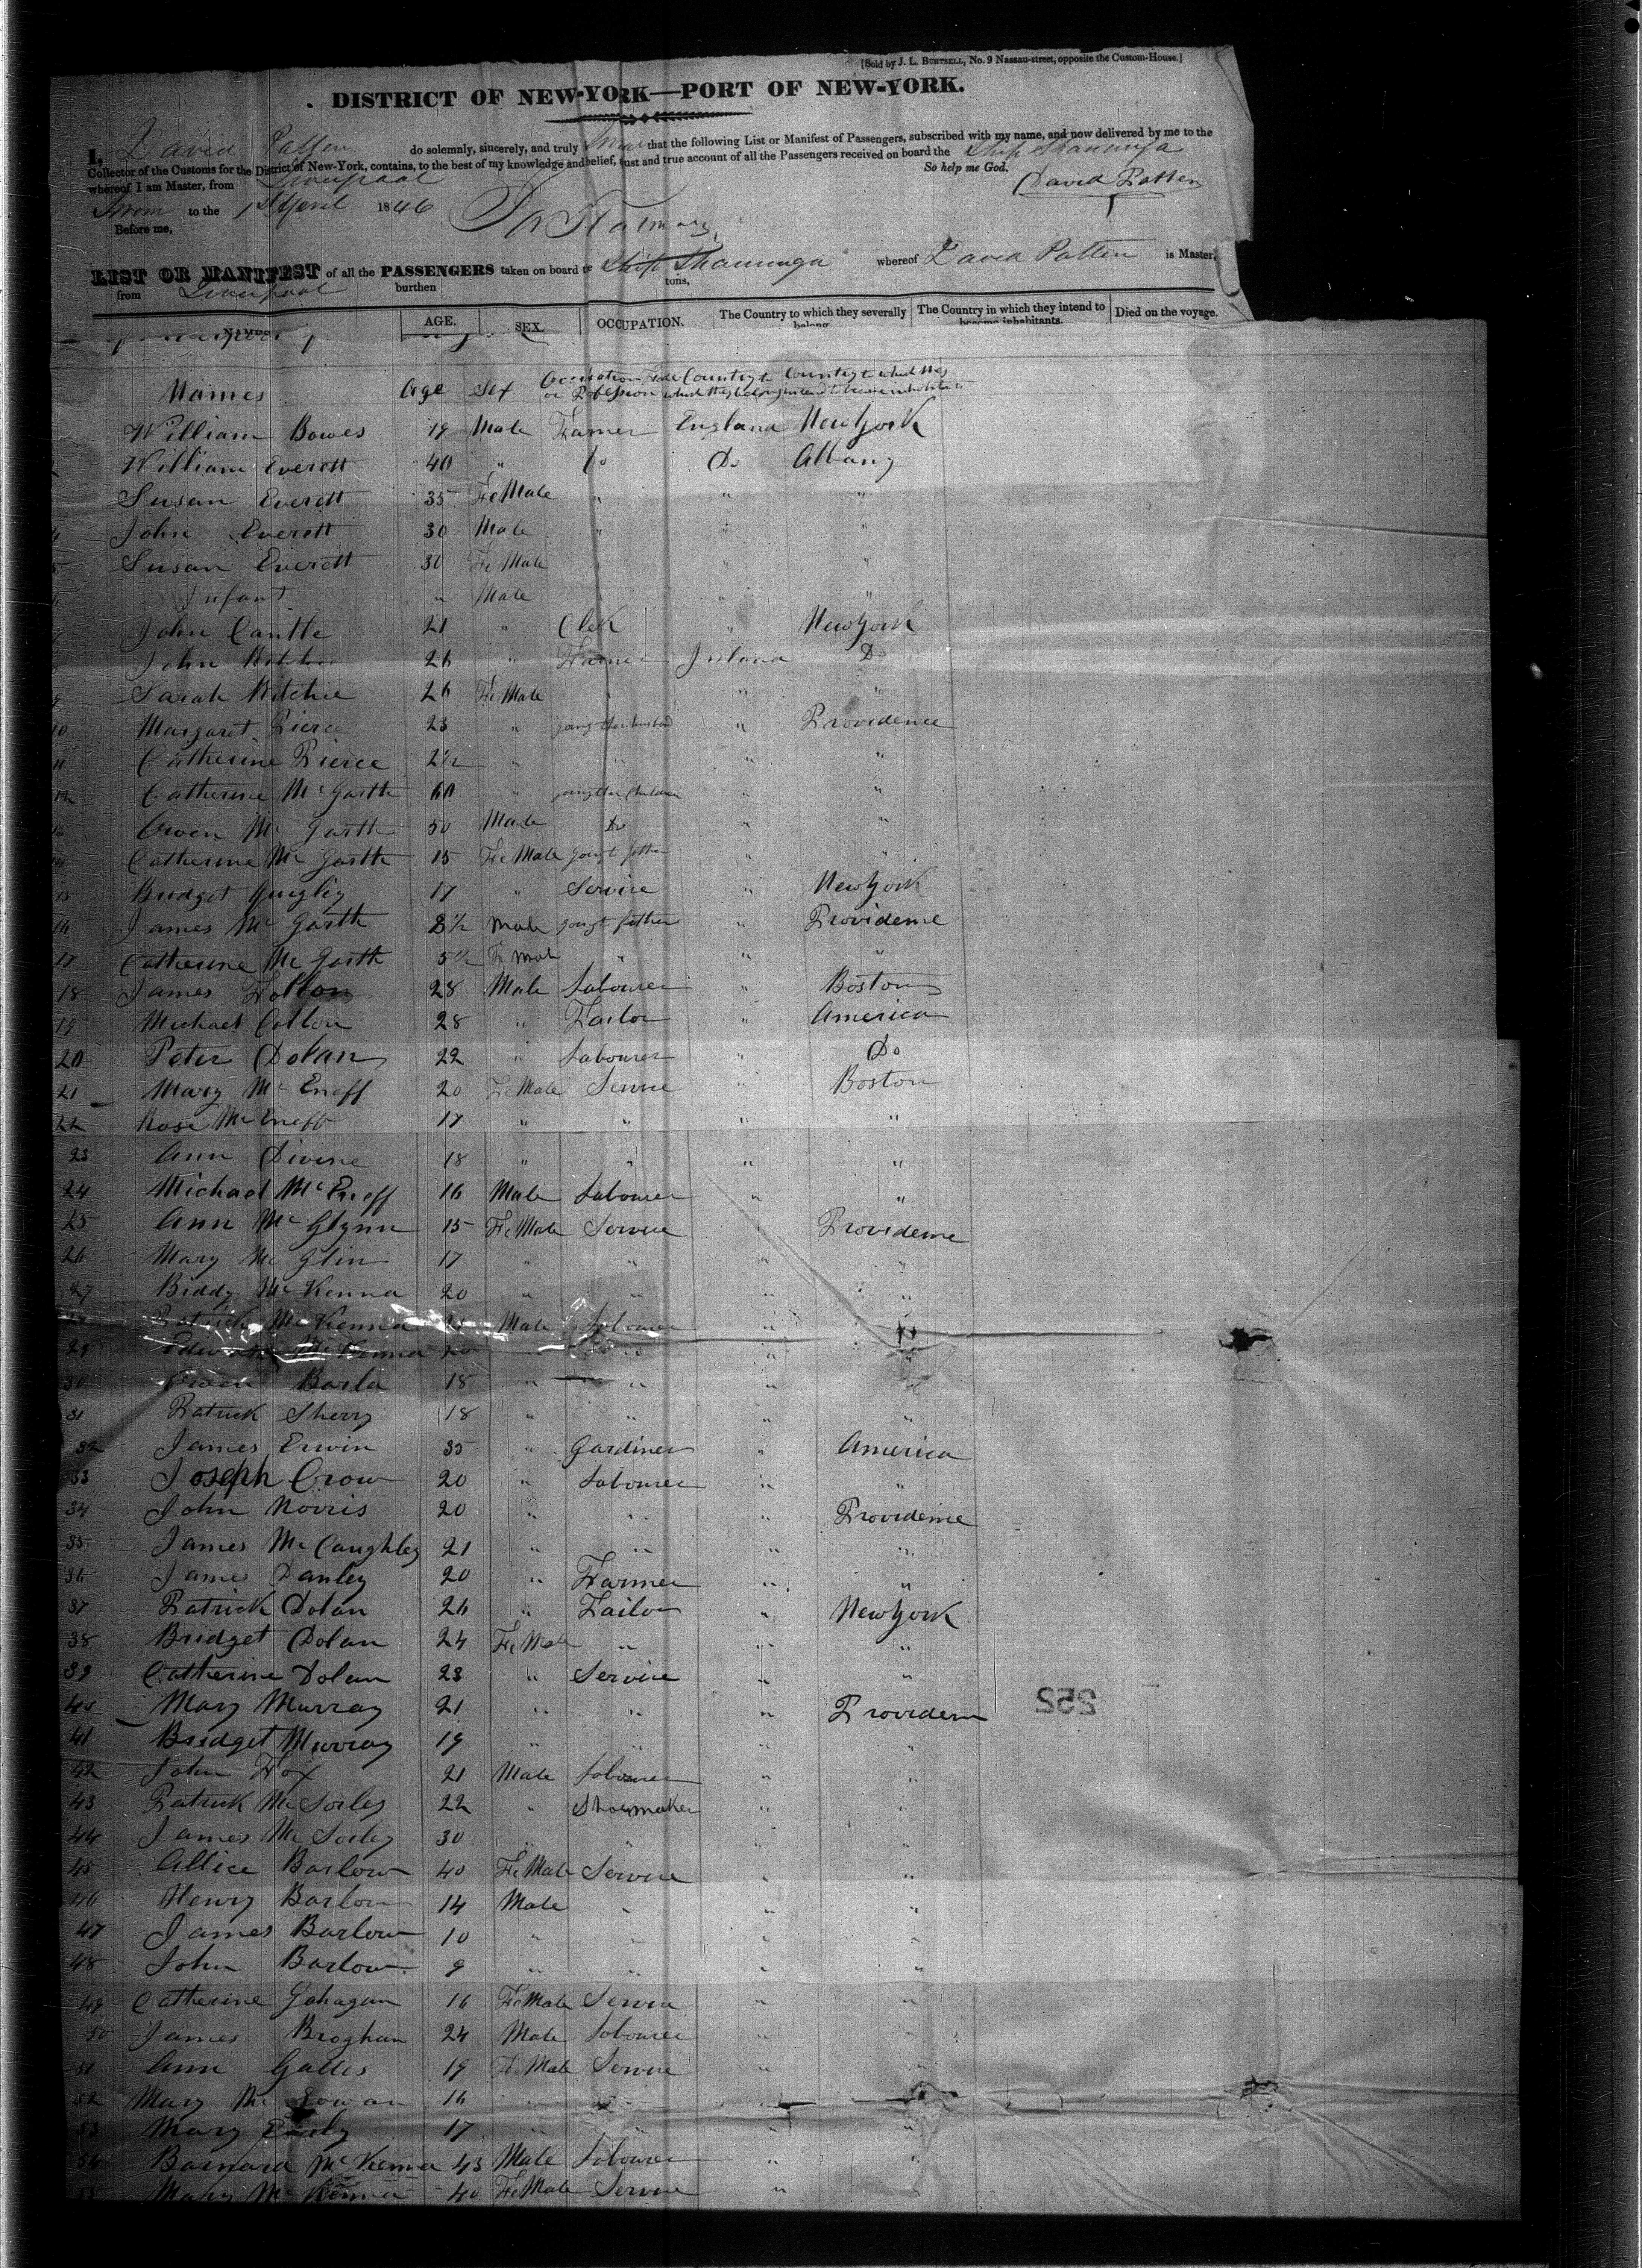 [Sold by J. L. BURTSELL, No. 9 Nassau-street, opposite the Custom-House.]
DISTRICT OF NEW-YORK—PORT OF NEW-YORK.
I, David Patten do solemnly, sincerely, and truly Swear that the following List or Manifest of Passengers, subscribed with my name, and now delivered by me to the
Collector of the Customs for the District of New-York, contains, to the best of my knowledge and belief, just and true account of all the Passengers received on board the Ship Shanunga
whereof I am Master, from Liverpool So help me God.
David Patten
Sworn to the 1st April 1846
Before me,
LIST OR MANIFEST of all the PASSENGERS taken on board the Ship Shanunga whereof David Patten is Master,
from Liverpool burthen tons,
NAMES AGE. SEX. OCCUPATION. The Country to which they severally belong. The Country in which they intend to become inhabitants. Died on the voyage.
Names Age Sex Occupation Trade or Profession Country to which they belong Country to which they intend to become inhabitants
William Bowes 19 Male Farmer England New York
William Everett 40 " Do Do Albany
Susan Everett 35 Fe Male " " "
4 John Everett 30 Male " " "
5 Susan Everett 30 Fe Male " "
Infant " Male " "
John Cantle 21 " Clek " New York
John Ritchie 26 " Farmer Ireland Do
9 Sarah Ritchie 26 Fe Male " " "
10 Margaret Pierce 23 " going to her husband " Providence
11 Catherine Pierce 2½ " " " "
12 Catherine Mc Garth 60 " going to her Children " "
13 Owen Mc Garth 50 Male Do " "
14 Catherine Mc Garth 15 Fe Male going to father " "
15 Bridget Quigley 17 " Service " New York
16 James Mc Garth 8½ Male going to father " Providence
17 Catherine Mc Garth 5½ Fe Male " " "
18 James Fallon 28 Male Labourer " Boston
19 Michael Collon 28 " Tailor " America
20 Peter Dolan 22 " Labourer " Do
21 Mary Mc Eneff 20 Fe Male Servie " Boston
22 Rose Mc Eneff 17 " " " "
23 Ann Divine 18 " " " "
24 Michael Mc Eneff 16 Male Labourer " "
25 Ann Mc Glynn 15 Fe Male Service Providence
26 Mary Mc Glin 17 " " " "
27 Biddy Mc Kenna 20 " " " "
Patrick Mc Kenna Male Labourer " "
29 Edward Mc Kenna 20 " " " "
30 Owen Barla 18 " " "
31 Patrick Sherry 18 " " " "
32 James Erwin 35 " Gardiner " America
33 Joseph Crow 20 " Labourer " "
34 John Norris 20 " " " Providence
35 James Mc Caughley 21 " " " "
36 James Danley 20 " Farmer " "
37 Patrick Dolan 26 " Tailor " New York
38 Bridget Dolan 24 Fe Male " " "
39 Catherine Dolan 23 " Service " "
40 Mary Murray 21 " " " Providence
41 Bridget Murray 19 " " " "
42 John Fox 21 Male Labourer " "
43 Patrick Mc Sorley 22 " Shoemaker " "
44 James Mc Sorley 30 " " " "
45 Allice Barlow 40 Fe Male Service " "
46 Henry Barlow 14 Male " " "
47 James Barlow 10 " " " "
48 John Barlow 9 " " " "
49 Catherine Gahagan 16 Fe Male Service " "
50 James Broghan 24 Male Labourer " "
51 Ann Galles 19 Fe Male Service " "
52 Mary Mc 16 " " "
53 Mary Early 17 " " " "
54 Barnard Mc Kenna 43 Male Labourer " "
55 Mary Mc Kenna 40 Fe Male Service "
252